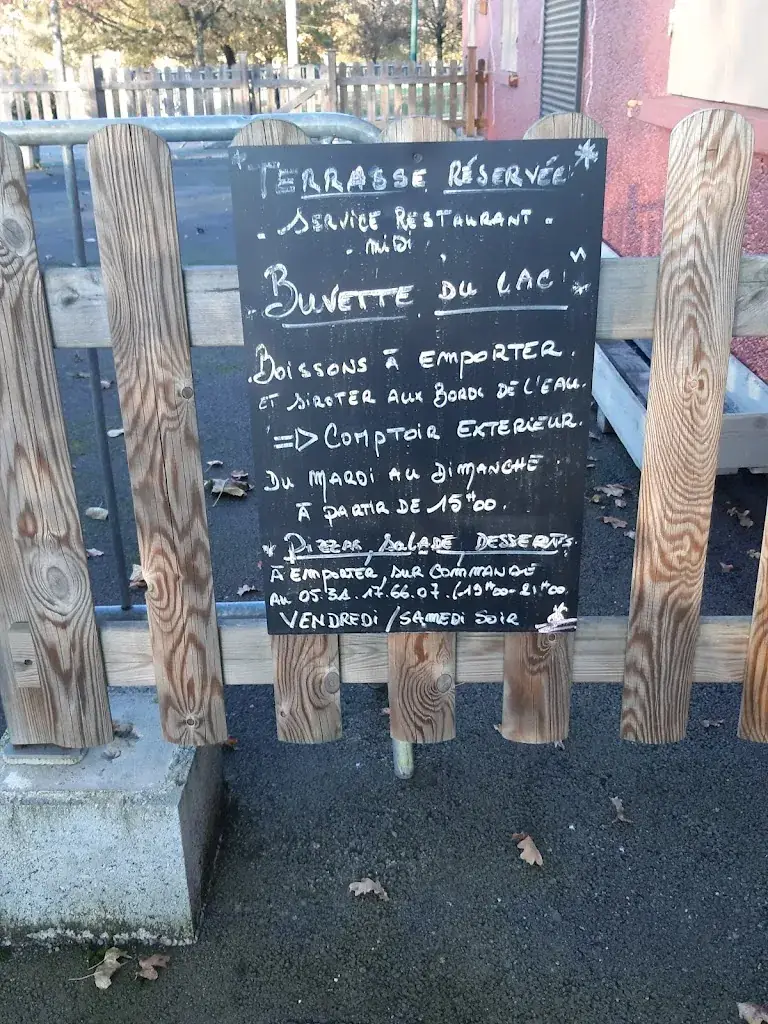 TERRASSE RÉSERVÉE
SERVICE RESTAURANT
MIDI
BUVETTE DU LAC
BOISSONS À EMPORTER.
ET SIROTER AUX BORDS DE L'EAU.
=> COMPTOIR EXTERIEUR.
DU MARDI AU DIMANCHE
À PARTIR DE 15H00.
* PIZZAS, SALADE, DESSERTS.
À EMPORTER, SUR COMMANDE
AU 05.34.17.66.07. (19H00-21H00.
VENDREDI / SAMEDI SOIR